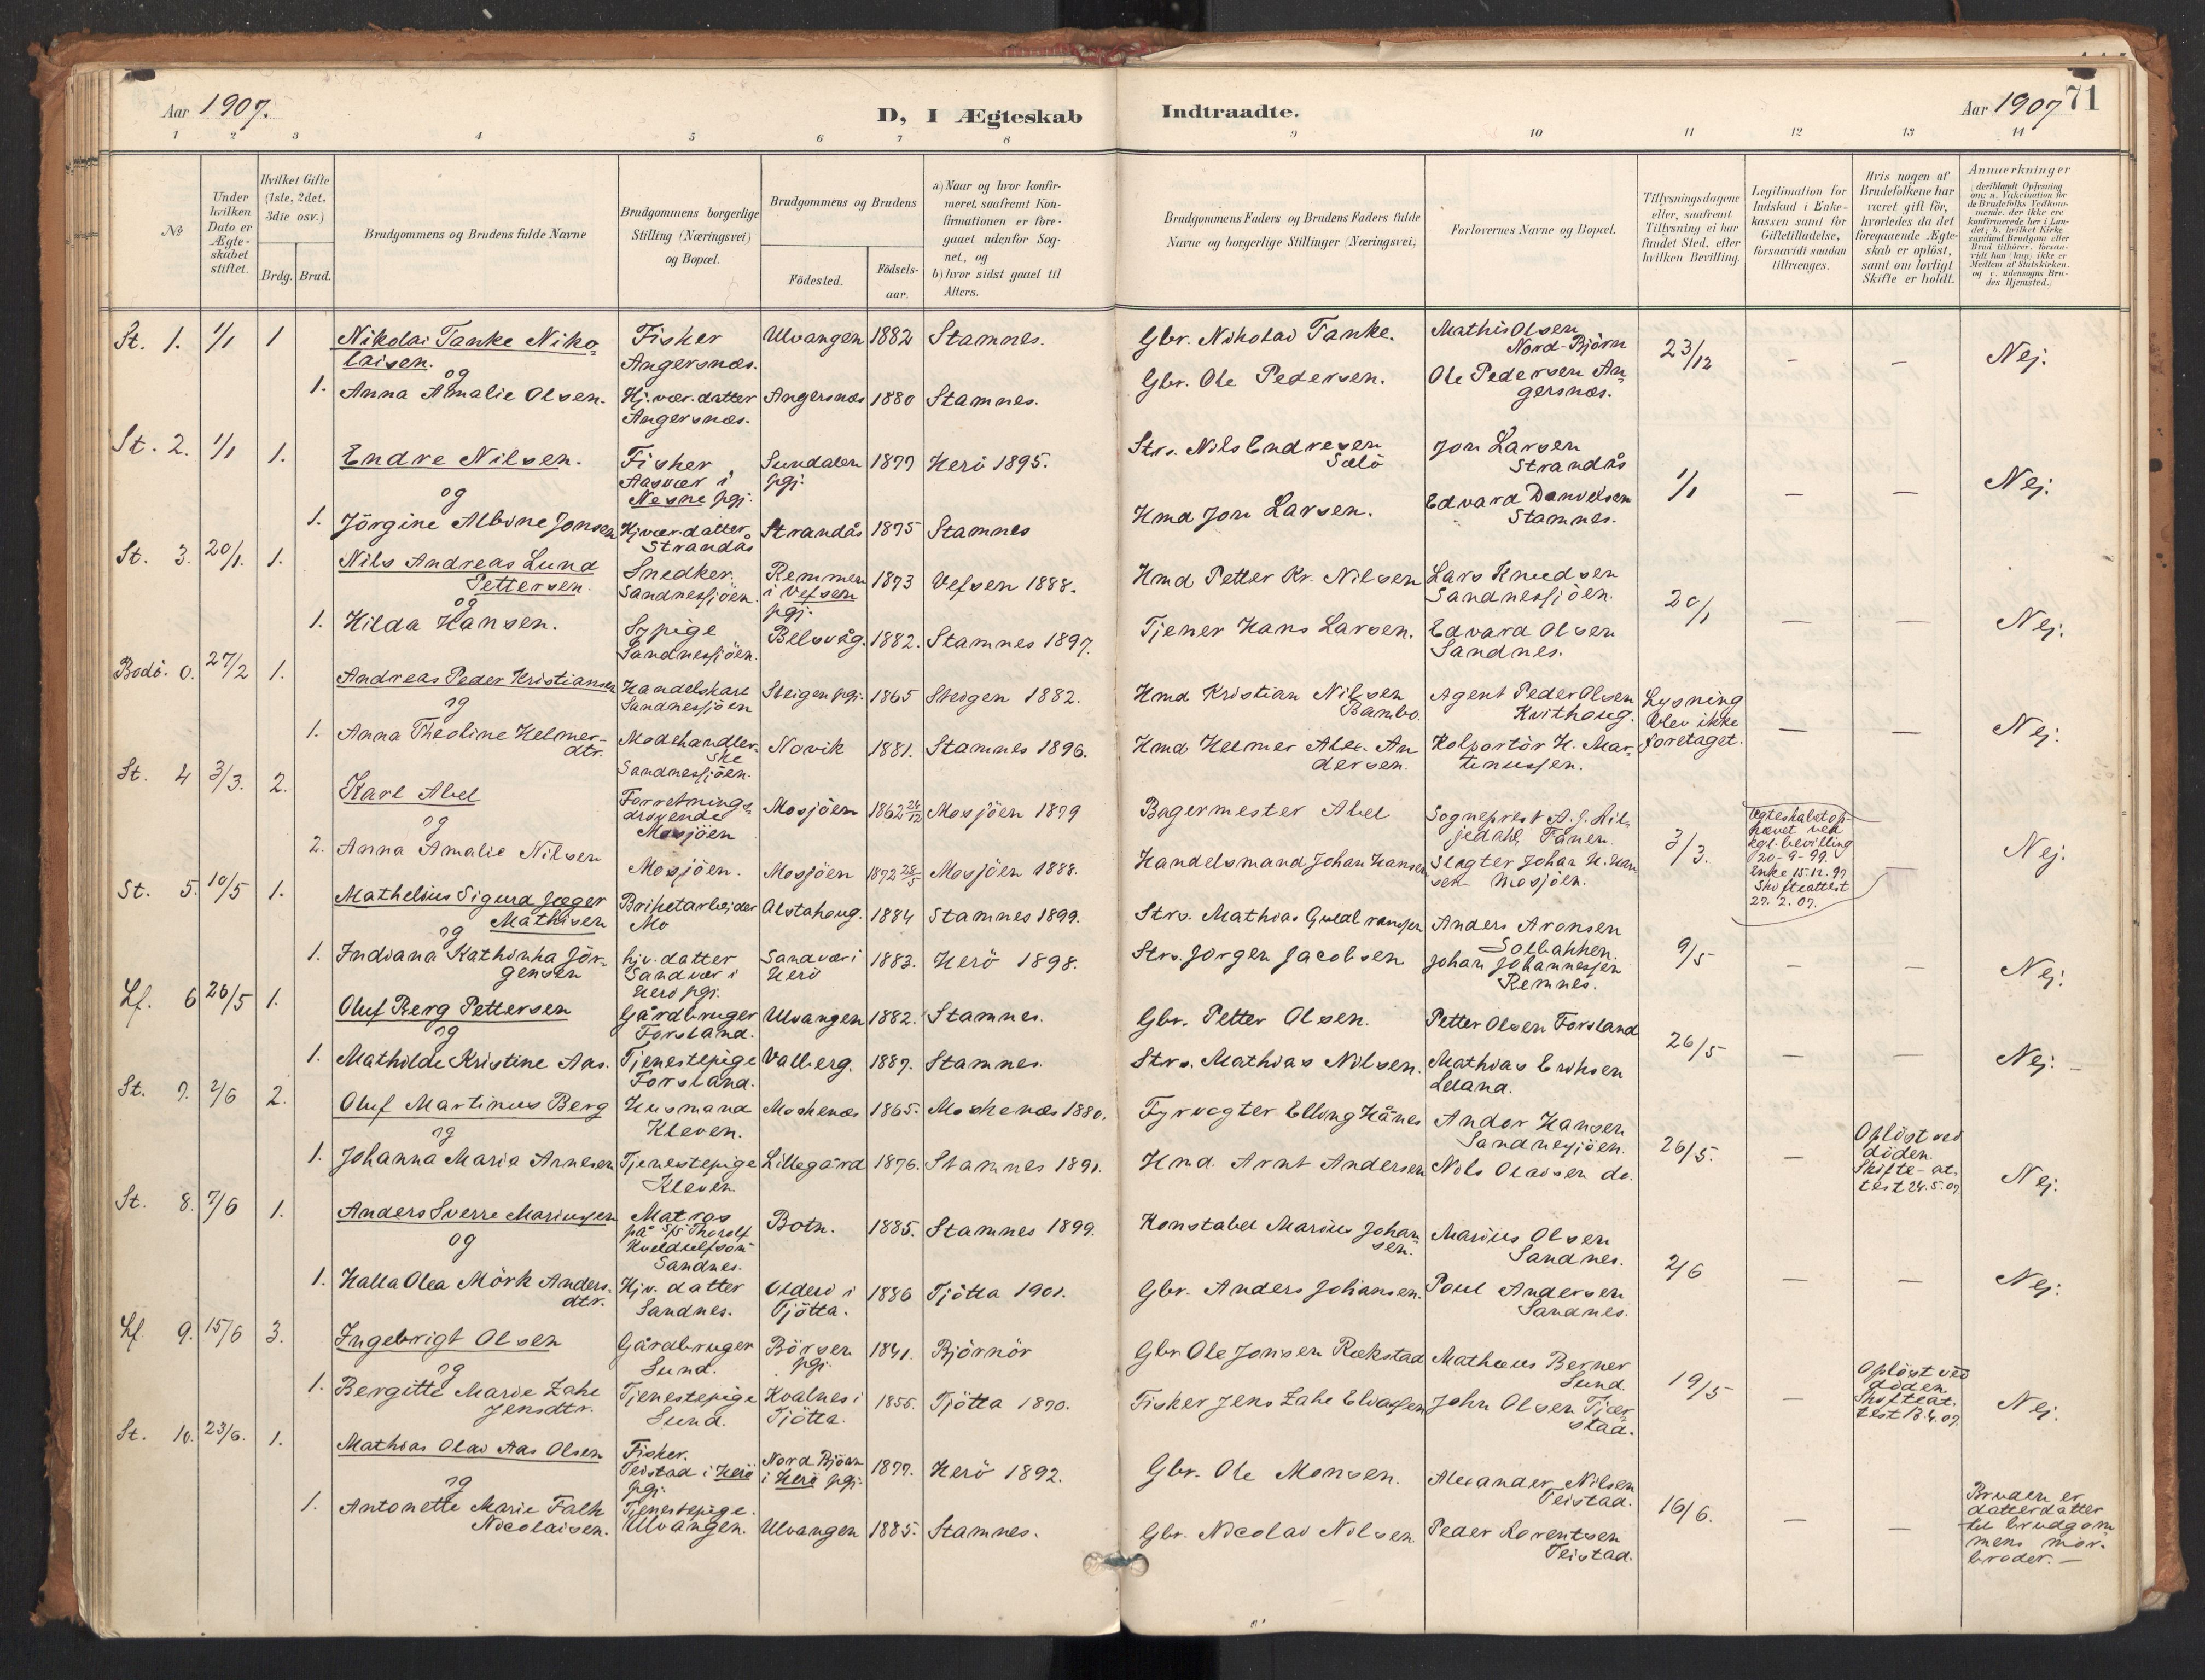 Aar 1907.
D, I Ægteskab
Indtraadte.
Aar 1907
71
1 2 3 4 5 6 7 8 9 10 11 12 13 14
No
Under hvilken Dato er Ægteskabet stiftet.
Hvilket Gifte (1ste, 2det, 3die osv.)
Brdg. Brud.
Brudgommens og Brudens fulde Navne
Brudgommens borgerlige Stilling (Næringsvei) og Bopæl.
Brudgommens og Brudens
Födested.
Födsels-aar.
a) Naar og hvor konfirmeret, saafremt Konfirmationen er foregaaet udenfor Sognet, og
b) hvor sidst gaaet til Alters.
Brudgommens Faders og Brudens Faders fulde Navne og borgerlige Stillinger (Næringsvei)
Forlovernes Navne og Bopæl.
Tillysningsdagene eller, saafremt Tillysning ei har fundet Sted, efter hvilken Bevilling.
Legitimation for Indskud i Enkekassen samt for Giftetilladelse, forsaavidt saadan tiltrænges.
Hvis nogen af Brudefolkene har været gift för, hvorledes da det foregaaende Ægteskab er oplöst, samt om lovligt Skifte er holdt.
Anmærkninger
(deriblandt Oplysning om: a. Vakcination for de Brudefolks Vedkommende, der ikke ere konfirmerede her i Landet; b. hvilket Kirkesamfund Brudgom eller Brud tilhörer, forsaavidt han (hun) ikke er Medlem af Statskirken, og c. udensogns Brudes Hjemsted.)
St. 1. 1/1 1 Nikolai Tanke Nikolaisen. Fisker Angersnæs. Ulvangen 1882 Stamnes. Gbr. Nikolai Tanke. Mathis Olsen Nord-Björn 23/12 – – Nej.
og
1. Anna Amalie Olsen. Hj.vær.datter Angersnæs. Angersnæs 1880 Stamnes. Gbr. Ole Pedersen. Ole Pedersen Angersnæs.
St. 2. 1/1 1. Endre Nilsen. Fisker, Aasvær i Nesne pgj. Sundalen pgj. 1877 Herö 1895. Strs. Nils Endresen Salö Jon Larsen Strandås 1/1 – – Nej.
og
1. Jörgine Albine Jonsen Hjvær.datter Strandås Strandås 1875 Stamnes Hmd Jon Larsen. Edvard Danielsen Stamnes.
St. 3. 20/1. 1. Nils Andreas Lund Pettersen. Snedker. Sandnessjöen. Remmen i Vefsen pgj. 1873 Vefsen 1888. Hmd Petter Kr. Nilsen Lars Knudsen Sandnessjöen. 20/1 – – Nej.
og
1. Hilda Hansen. Sypige Sandnessjöen. Belsvåg. 1882. Stamnes 1897. Tjener Hans Larsen. Edvard Olsen Sandnes.
Bodö. 0. 27/2 1. Andreas Peder Kristiansen Handelskarl Sandnessjöen Steigen pgj. 1865 Steigen 1882. Hmd Kristian Nilsen Bambo. Agent Peder Olsen Kvithaug. Lysning blev ikke foretaget. – – Nej.
og
1. Anna Theoline Helmerdtr. Modehandlerske Sandnessjöen. Novik 1881. Stamnes 1896. Hmd Helmer Alex. Andersen. Kolportör H. Martinussen.
St. 4 3/3. 2. Karl Abel Forretningsdrivende Mosjöen Mosjöen 1862 Mosjöen 1879 Bagermester Abel Sogneprest A. J. Liljedahl, Tånen. 3/3. Ægteskabet ophævet ved kgl. bevilling 20-9-99. Enke 15.12.97 Skifteattest 27.2.07. – Nej.
og
2. Anna Amalie Nilsen Mosjöen. Mosjöen 1872 28/5 Mosjöen 1888. Handelsmand Johan Hansen Slagter Johan H. Hansen Mosjöen.
St. 5. 10/5 1. Mathelius Sigurd Jæger Mathisen Briketarbejder Mo Alstahaug. 1884 Stamnes 1899. Strs. Mathias Anders Aronsen Solbakken. 9/5 – – Nej.
og
1. Indiana Kathinka Jörgensen hjv. datter Sandvær i Herö pgj. Sandvær i Herö 1882. Herö 1898. Strs. Jörgen Jacobsen Johan Johannessen Remnes.
Lf. 6 26/5 1. Oluf Berg Pettersen Gårdbruger Forsland. Ulvangen 1882. Stamnes. Gbr. Petter Olsen. Petter Olsen Forsland 26/5 – – Nej. –
og
1. Mathilde Kristine Aas. Tjenestepige Forsland. Valberg. 1887. Stamnes. Strs. Mathias Nilsen. Mathias Eriksen Leland.
St. 7. 2/6 2. Oluf Martinus Berg Husmand Kleven. Moskenæs 1865. Moskenæs 1880. Fyrvogter Elling Hånes Andor Hansen Sandnessjöen. 26/5. – Oplöst ved döden. Skifte-attest 24.5.07. Nej.
og
1. Johanna Maria Arnesen Tjenestepige Kleven. Lillegård 1876. Stamnes 1891. Hmd. Arnt Andersen Nils Olaisen do.
St. 8. 7/6 1. Anders Sverre Mariussen Matros på S/S Thorolf Kveldulfsön Sandnes. Botn. 1885. Stamnes 1899. Konstabel Marius Johansen. Marius Olsen Sandnes. 2/6 – – Nej.
og
1. Halla Olea Mörk Andersdtr. Hjv. datter Sandnes. Olderö i Tjötta. 1886 Tjötta 1901. Gbr. Anders Johansen. Poul Andersen Sandnes.
Lf. 9. 15/6 3. Ingebrigt Olsen Gårdbruger Sund. Börsen pgj. 1841. Björnör Gbr Ole Jonsen Rekstad Mathæus Berner Sund. 19/5 – Oplöst ved döden. Skifteattest 13.4.07. Nej.
og
1. Bergitte Marie Zahl Jensdtr. Tjenestepige Sund. Kvalnes i Tjötta. 1855. Tjötta 1870. Fisker Jens Zahl Eliassen John Olsen Tjærstad.
St. 10. 23/6. 1. Mathias Olai Aas Olsen Fisker. Teistad i Herö pgj. Nord Björn i Herö pgj. 1877. Herö 1892. Gbr. Ole Monsen. Alexander Nilsen Teistad. 16/6. – – Bruden er datterdatter til brudgommens morbroder. –
og
1. Antonette Marie Falk Nicolaisen. Tjenestepige. Ulvangen. Ulvangen 1885. Stamnes. Gbr. Nicolai Nilsen. Peder Lorentsen Teistad.